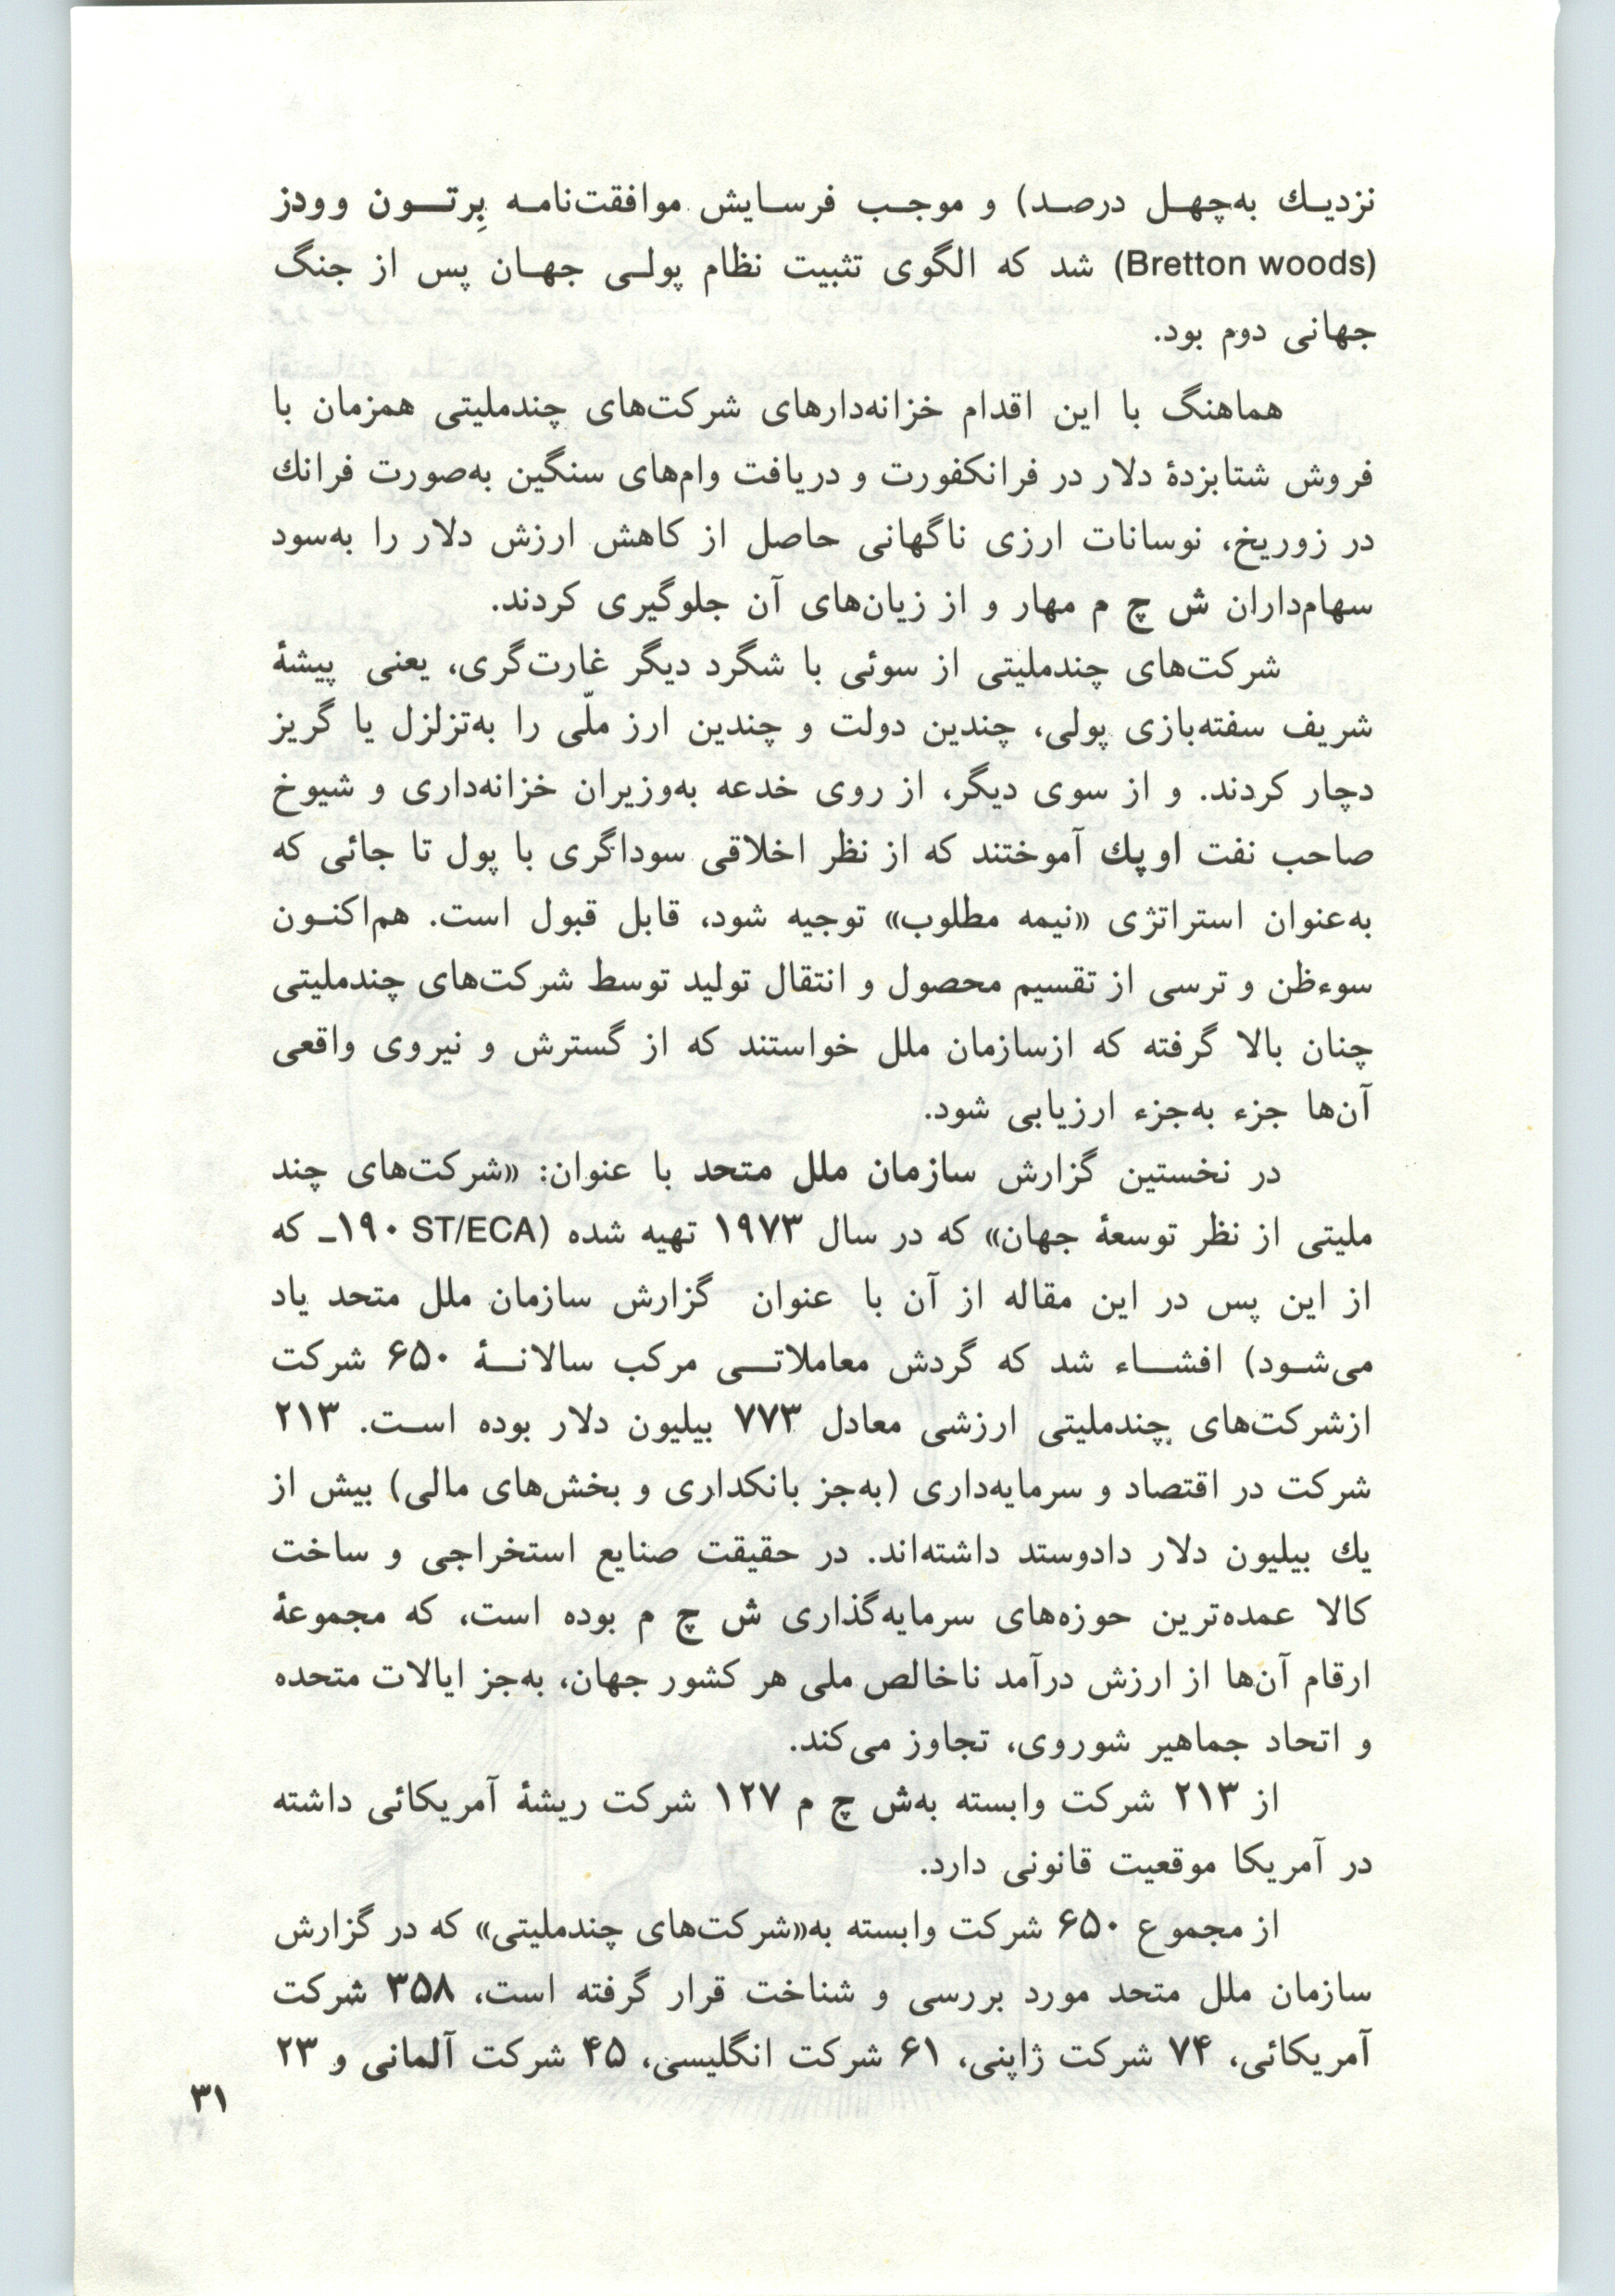 نزدیـك به‌چهـل درصـد) و موجـب فرسـایش موافقت‌نامـه بِرتـــون وودز
(Bretton woods) شد که الگوی تثبیت نظام پولـی جهـان پس از جنگ
جهانی دوم بود.
هماهنگ با این اقدام خزانه‌دارهای شرکت‌های چندملیتی همزمان با
فروش شتابزدهٔ دلار در فرانکفورت و دریافت وام‌های سنگین به‌صورت فرانك
در زوریخ، نوسانات ارزی ناگهانی حاصل از کاهش ارزش دلار را به‌سود
سهام‌داران ش چ م مهار و از زیان‌های آن جلوگیری کردند.
شرکت‌های چندملیتی از سوئی با شگرد دیگر غارت‌گری، یعنی پیشهٔ
شریف سفته‌بازی پولی، چندین دولت و چندین ارز ملّی را به‌تزلزل یا گریز
دچار کردند. و از سوی دیگر، از روی خدعه به‌وزیران خزانه‌داری و شیوخ
صاحب نفت اوپك آموختند که از نظر اخلاقی سوداگری با پول تا جائی که
به‌عنوان استراتژی «نیمه مطلوب» توجیه شود، قابل قبول است. هم‌اکنـون
سوءظن و ترسی از تقسیم محصول و انتقال تولید توسط شرکت‌های چندملیتی
چنان بالا گرفته که ازسازمان ملل خواستند که از گسترش و نیروی واقعی
آن‌ها جزء به‌جزء ارزیابی شود.
در نخستین گزارش سازمان ملل متحد با عنوان: «شرکت‌های چند
ملیتی از نظر توسعهٔ جهان» که در سال ۱۹۷۳ تهیه شده (ST/ECA ۱۹۰ـ که
از این پس در این مقاله از آن با عنوان گزارش سازمان ملل متحد یاد
می‌شـود) افشـــاء شد که گردش معاملاتـــی مرکب سالانـــهٔ ۶۵۰ شرکت
ازشرکت‌های چندملیتی ارزشی معادل ۷۷۳ بیلیون دلار بوده اسـت. ۲۱۳
شرکت در اقتصاد و سرمایه‌داری (به‌جز بانکداری و بخش‌های مالی) بیش از
یك بیلیون دلار دادوستد داشته‌اند. در حقیقت صنایع استخراجی و ساخت
کالا عمده‌ترین حوزه‌های سرمایه‌گذاری ش چ م بوده است، که مجموعهٔ
ارقام آن‌ها از ارزش درآمد ناخالص ملی هر کشور جهان، به‌جز ایالات متحده
و اتحاد جماهیر شوروی، تجاوز می‌کند.
از ۲۱۳ شرکت وابسته به‌ش چ م ۱۲۷ شرکت ریشهٔ آمریکائی داشته
در آمریکا موقعیت قانونی دارد.
از مجموع ۶۵۰ شرکت وابسته به«شرکت‌های چندملیتی» که در گزارش
سازمان ملل متحد مورد بررسی و شناخت قرار گرفته است، ۳۵۸ شرکت
آمریکائی، ۷۴ شرکت ژاپنی، ۶۱ شرکت انگلیسی، ۴۵ شرکت آلمانی و ۲۳
۳۱